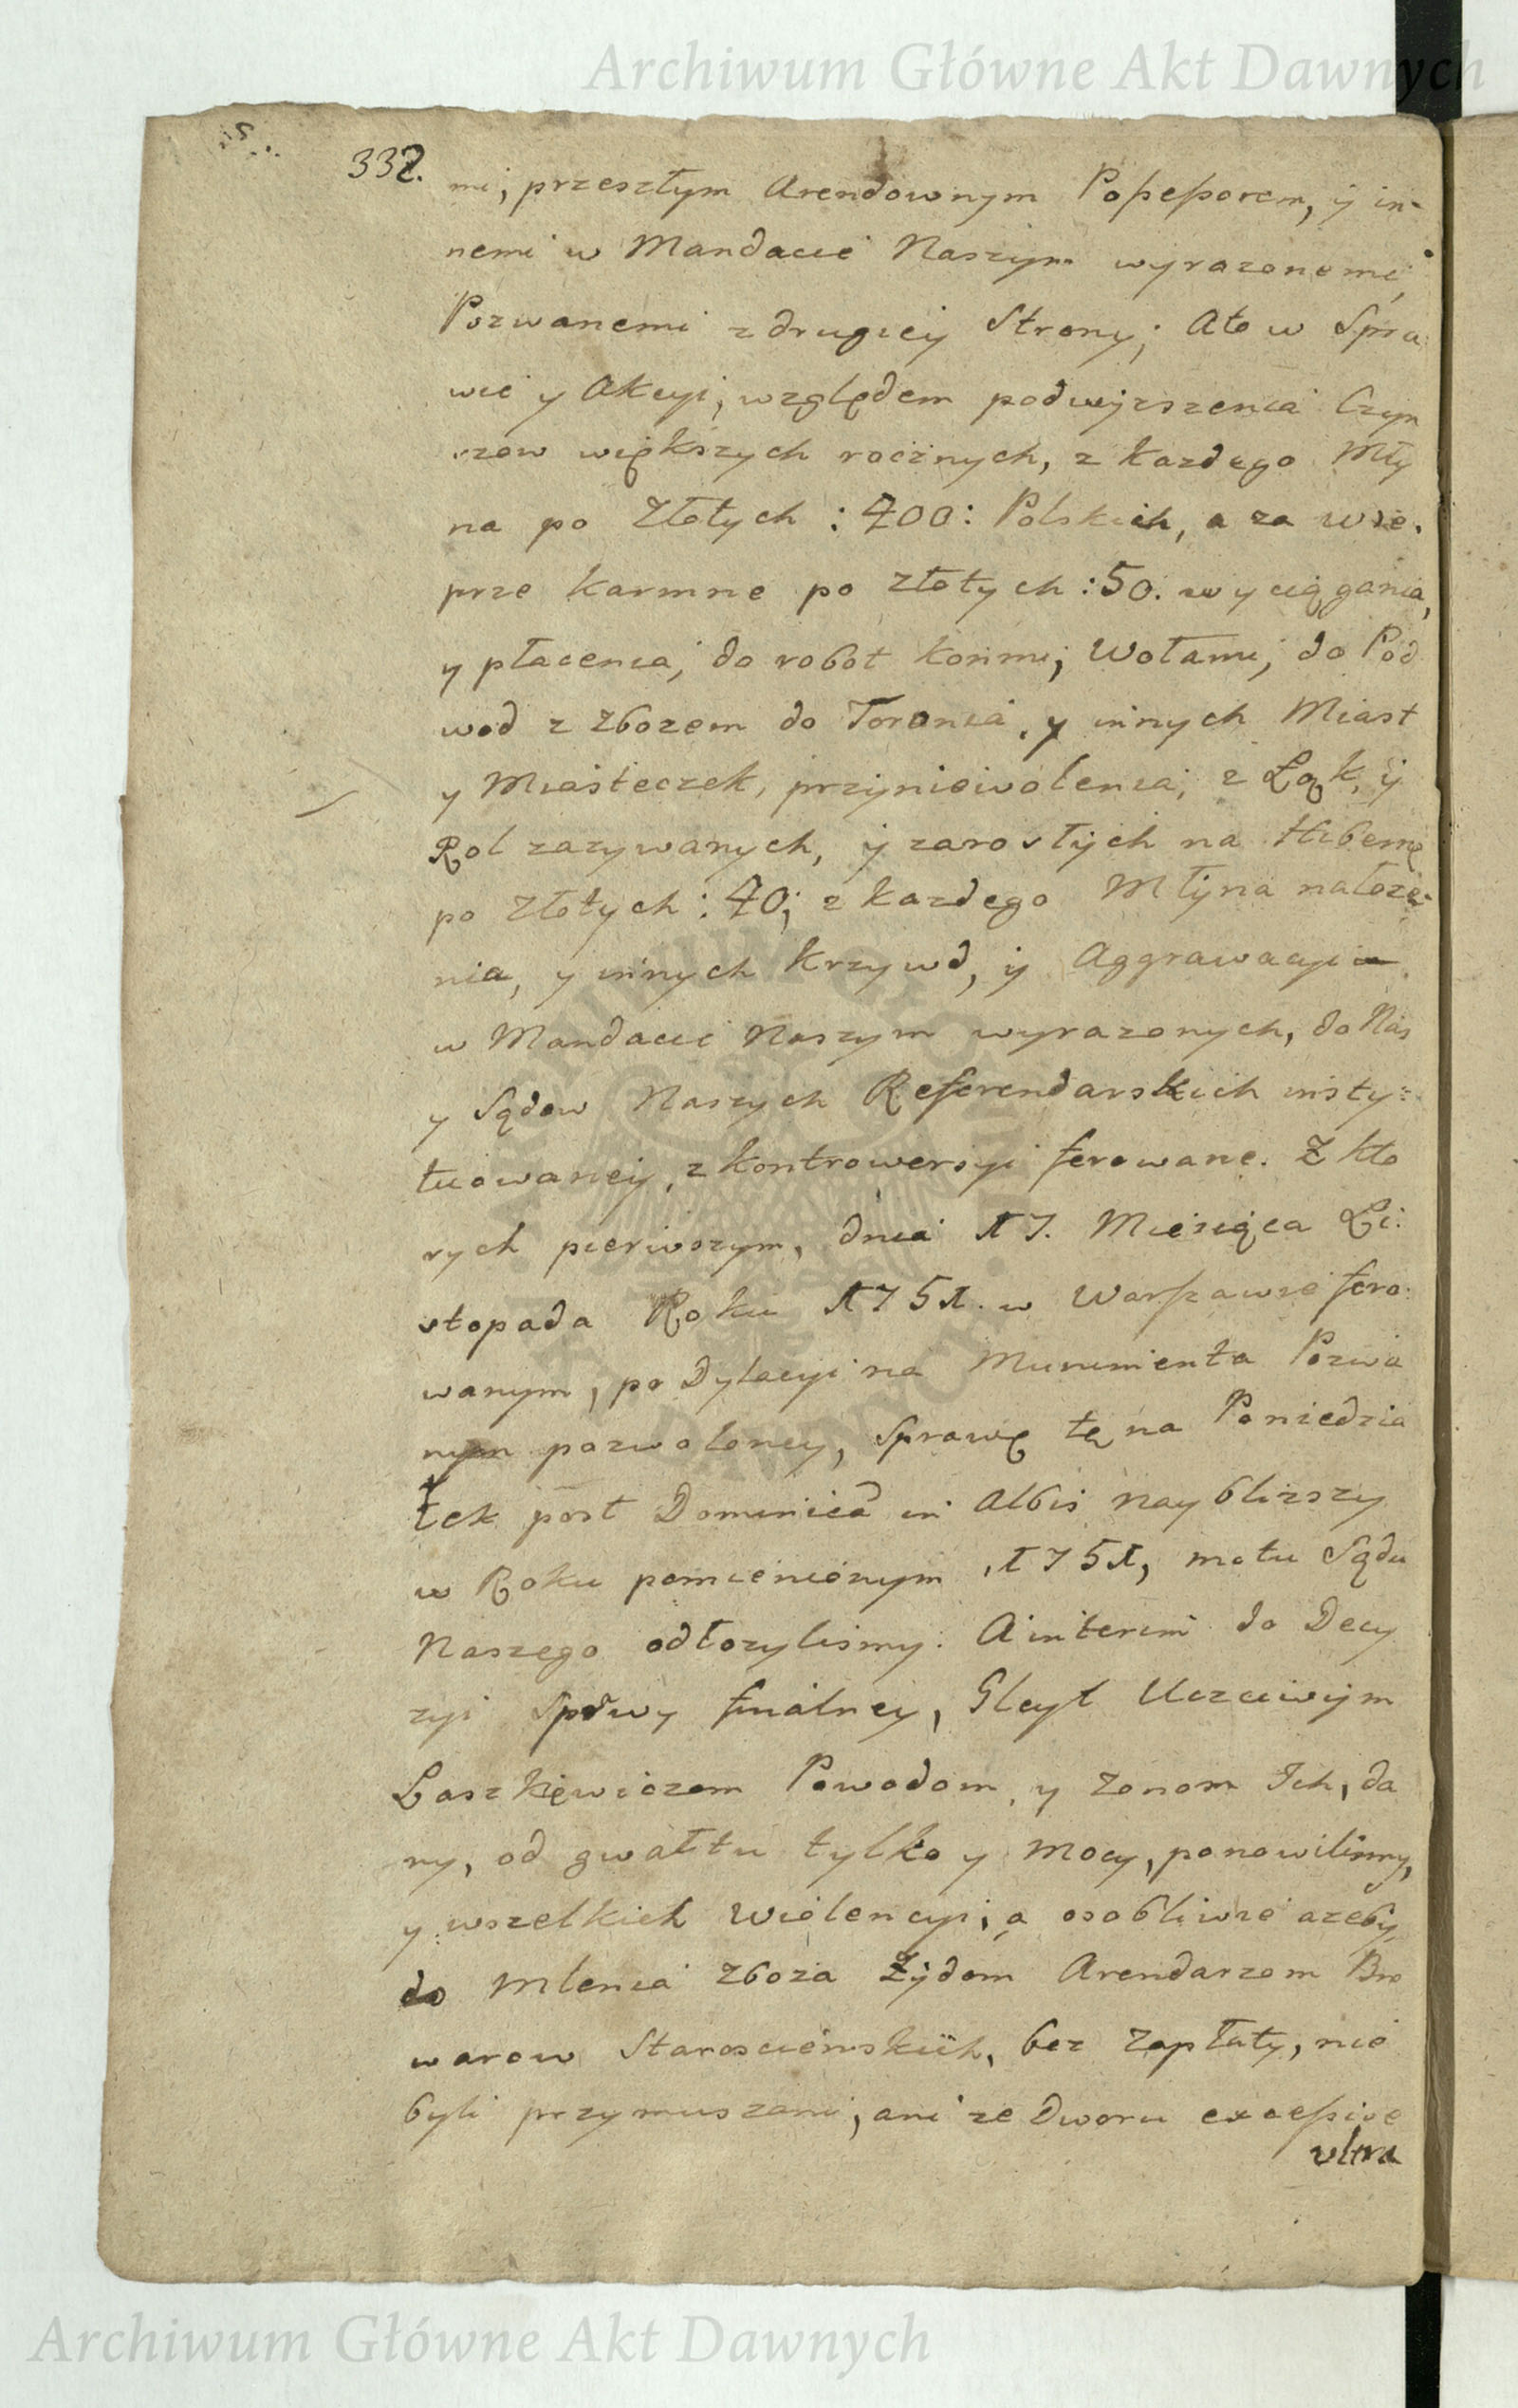 Archiwum Główne Akt Dawnych
332.
mi, przeszłym Arendownym Possessorem, y in-
nemi w Mandacie Naszym wyrazonemi,
Pozwanemi z drugiey Strony; Ato w Spra
wie y Akcyi, względem podwyzszenia Czyn
szow większych rocznych, z kazdego Mły
na po Złotych : 400 : Polskich, a za wie.
prze karmne po złotych : 50. wyciągania,
y płacenia, do robot konmi, Wołami, do Pod
wod z zbozem do Torunia, y innych Miast
y Miasteczek, przyniewolenia, z Łąk, y
Rol zazywanych, y zarosłych na Hibernę
po Złotych : 40; z kazdego Młyna nałoze-
nia, y innych krzywd, y Aggrawacyi
w Mandacie Naszym wyrazonych, do Nas
y Sądow Naszych Referendarskich insty:
tuowaney, z kontrowersyi ferowane. Z kto
rych pierwszym, dnia 17. Miesiąca Li:
stopada Roku 1751. w Warszawie fero:
wanym, po Dylacyi na Munimenta Pozwa
nym pozwoloney, Sprawę tę na Poniedzia
łek post Dominicã in Albis naybliższy
w Roku pomienionym 1751, motu Sądu
Naszego odłozylismy. A interim do Decy
zyi Sprawy finalney, Gleyt Uczciwym
Laszkiewiczom Powodom, y Zonom Ich, da
ny, od gwałtu tylko y mocy, ponowilismy,
y wszelkich Wiolencyi, a osobliwie azeby
do Mlenia Zboza Żydom Arendarzom Bro
warow Staroscienskich, bez Zapłaty, nie
byli przymuszani, ani ze Dworu excessive
ultra
Archiwum Główne Akt Dawnych